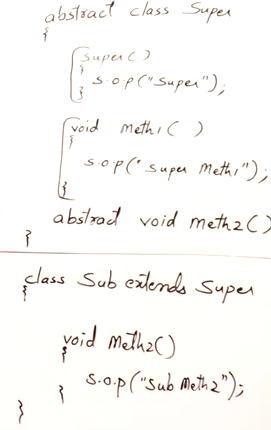 abstract class Super
{
Super()
{
S.o.p("Super");
}
void meth1( )
{
S.o.p("Super Meth1");
}
abstract void meth2()
}
class Sub extends Super
{
void Meth2()
{
S.o.p("Sub Meth2");
}
}